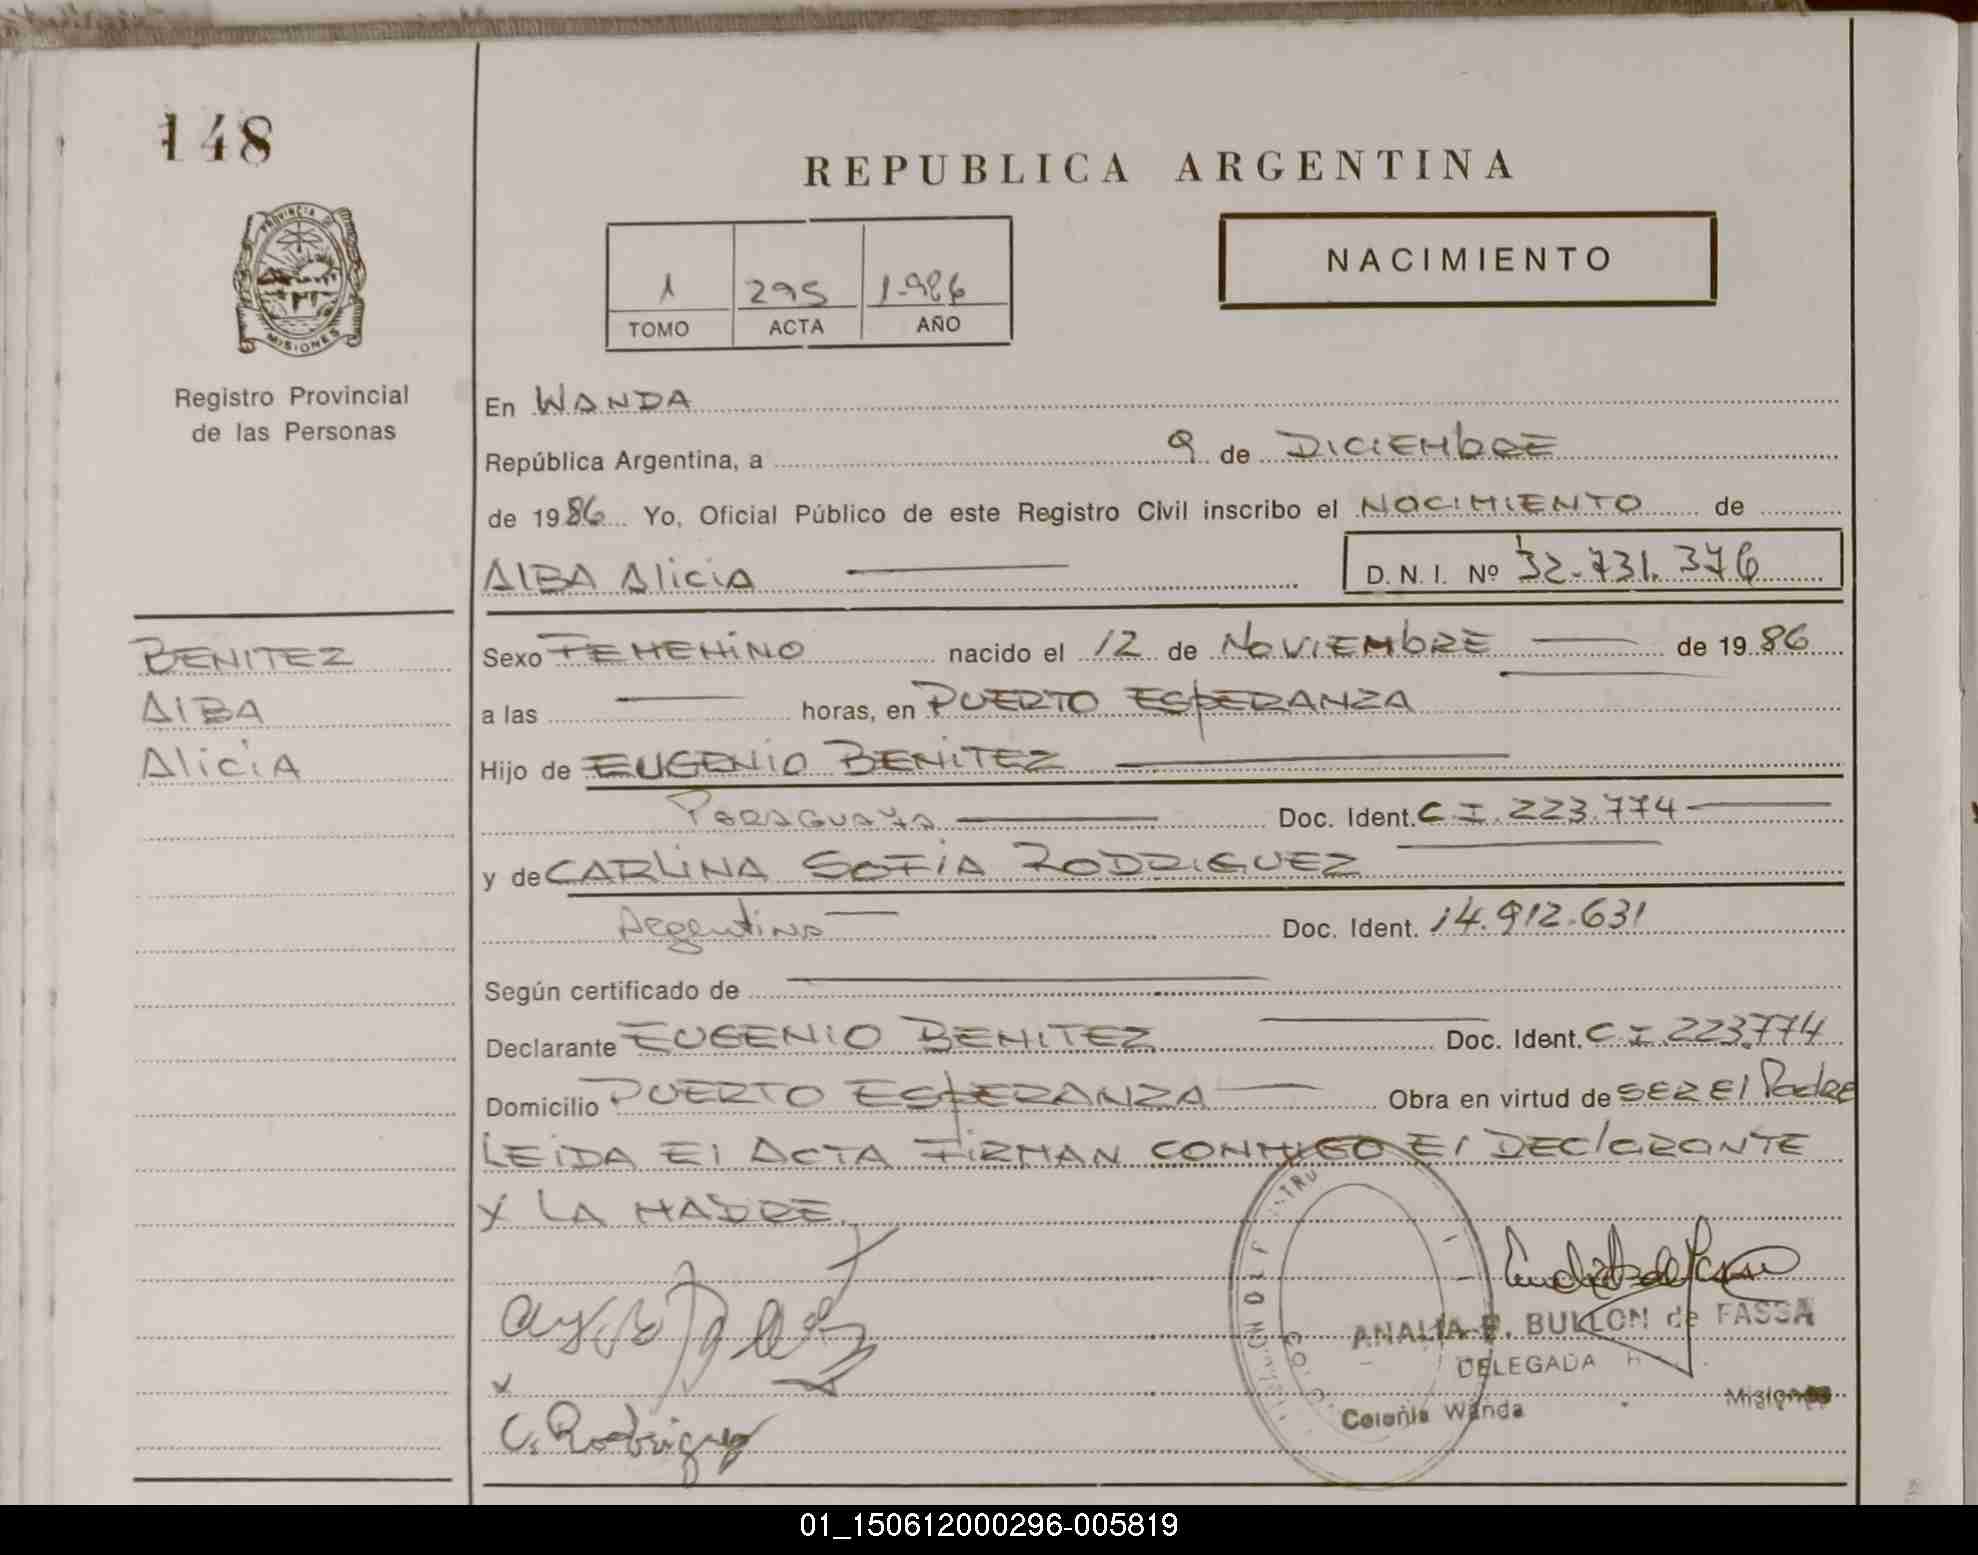 148
REPUBLICA ARGENTINA
PROVINCIA DE
MISIONES
Registro Provincial
de las Personas
1 295 1.986
TOMO ACTA AÑO
NACIMIENTO
En WANDA
República Argentina, a 9 de DICIEMBRE
de 1986 Yo, Oficial Público de este Registro Civil inscribo el NACIMIENTO de
ALBA AliciA D. N. I. Nº 32.731.376
BENITEZ
AlBA
AliciA
Sexo FEMENiNO nacido el 12 de NoVIEMbRE de 19 86
a las horas, en PUERTO ESPERANZA
Hijo de EUGENIO BENITEZ
PARAGUAYA Doc. Ident. C I. 223.774
y de CARLiNA SOFiA RODRIGUEZ
Argentina Doc. Ident. 14.912.631
Según certificado de
Declarante EUGENIO BENITEZ Doc. Ident. C I. 223.774
Domicilio PUERTO ESPERANZA Obra en virtud de SER El Padre
LEiDA El ACTA FiRMAN CONMIGO El DEClARANTE
Y LA MADRE.
C. Rodriguez
ANALIA E. BULLON de FASSA
DELEGADA
Colonia Wanda Misiones
01_150612000296-005819